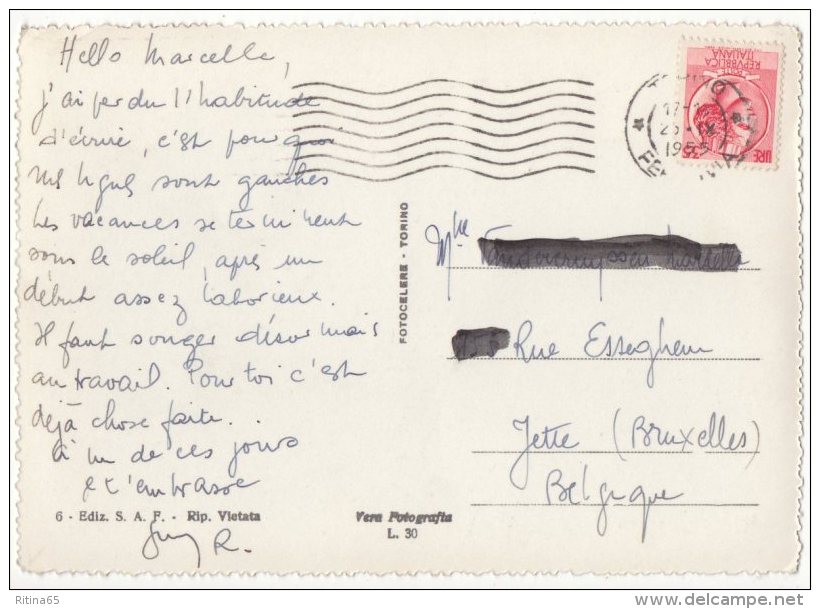 Hello Marcelle,
j'ai perdu l'habitude
d'écrire, c'est pourquoi
mes lignes sont gauches
Les vacances se terminent
sous le soleil, après un
début assez laborieux.
Il faut songer désormais
au travail. Pour toi c'est
déjà chose faite..
à un de ces jours
et t'embrasse
6 - Ediz. S. A. F. - Rip. Vietata
R.
Vera Fotografia
L. 30
FOTOCELERE - TORINO
REPVBBLICA
ITALIANA
LIRE
17-
1955
Mlle
Rue Esseghem
Jette (Bruxelles)
Belgique
Ritina65
delcampe.net